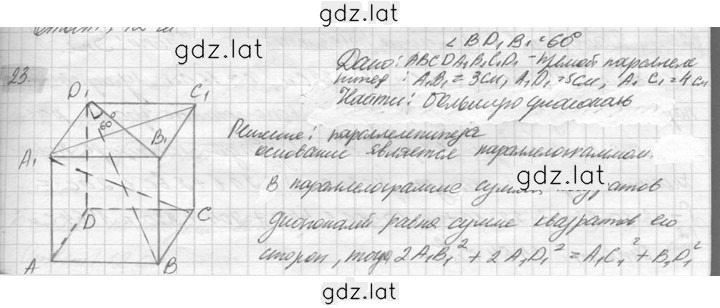 gdz.lat
∠BD₁B₁=60°
23. Дано: ABCDA₁B₁C₁D₁ - прямой параллеле
пипед: A₁B₁=3см, A₁D₁=5см, A₁C₁=4см
gdz.lat
Найти: большую диагональ
Решение: параллелепипеда
основание является параллелограммом.
В параллелограмме сумма квадратов
диагоналей равна сумме квадратов его
сторон, тогда 2A₁B₁²+2A₁D₁²=A₁C₁²+B₁D₁²
D₁ C₁
60°
B₁
A₁
D C
A B
gdz.lat
gdz.lat
gdz.lat